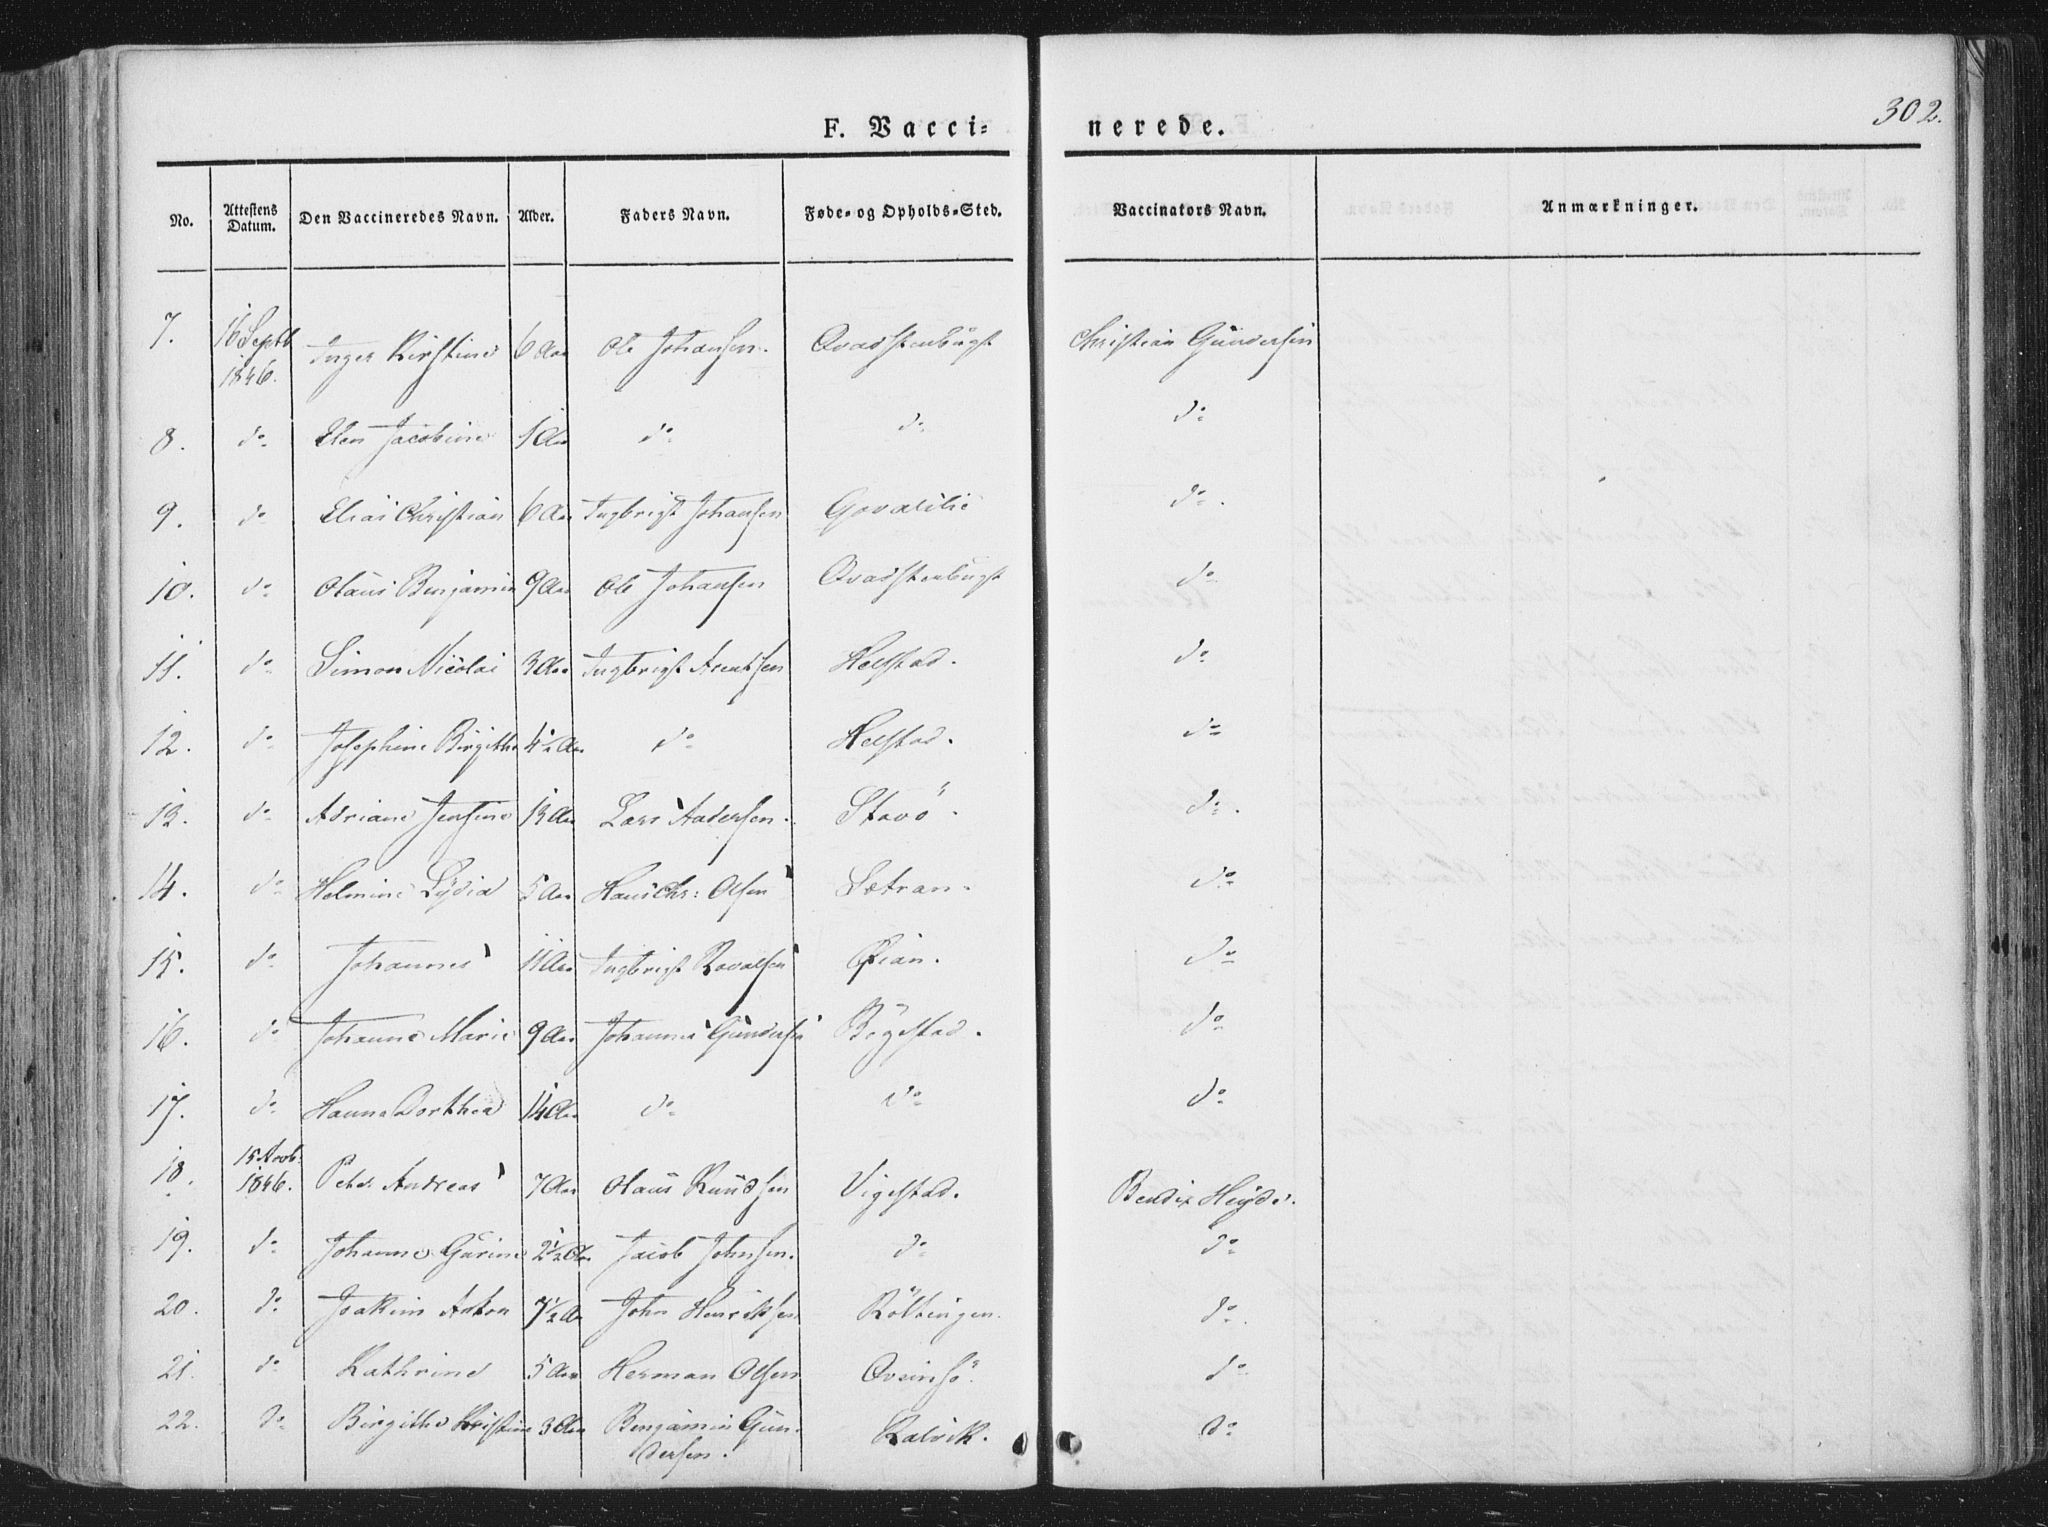 302.
F. Vacci= nerede.
No. Attestens Datum. Den Vaccineredes Navn. Alder. Faders Navn. Føde- og Opholds-Sted. Vaccinators Navn. Anmærkninger.
7. 16 Septb 1846. Inger Kirstine 6 Aar Ole Johansen. Qvadstenbugt Christian Gundersen
8. do Elen Jacobine 1 Aar do do do
9. do Elias Christian 6 Aar Ingbrigt Johansen do.
10. do Olaus Benjamin 9 Aar Ole Johansen Qvadstenbugt do
11. do Simon Nicolai 3 Aar Ingbrigt Arentsen Helstad. do
12. do Josephine Birgithe 4½ Aar do Helstad. do
13. do Adriane Jensine 13 Aar Lars Andersen. Stavö. do.
14. do Helmine Lydia 5 Aar Hans Chr: Olsen Sætran. do
15. do Johannes 11 Aar Ingbrigt Øian. do
16. do Johanne Marie 9 Aar Johannes Gundersen Bøgestad. do
17. do Hanna Dorthea 14 Aar do do do
18. 15 Novb. 1846. Peder Andreas 7 Aar Olaus Knudsen Vigestad. Bendix Heyde.
19. do Johanne Gurine 2½ Aar Jacob Johnsen. do do
20. do Joakim Anton 7½ Aar John Henriksen Röltingen. do
21. do Kathrine 5 Aar Herman Olsen Qveinsö. do
22. do Birgithe Kristine 3 Aar Benjamin Gun-
dersen. Kalvik. do